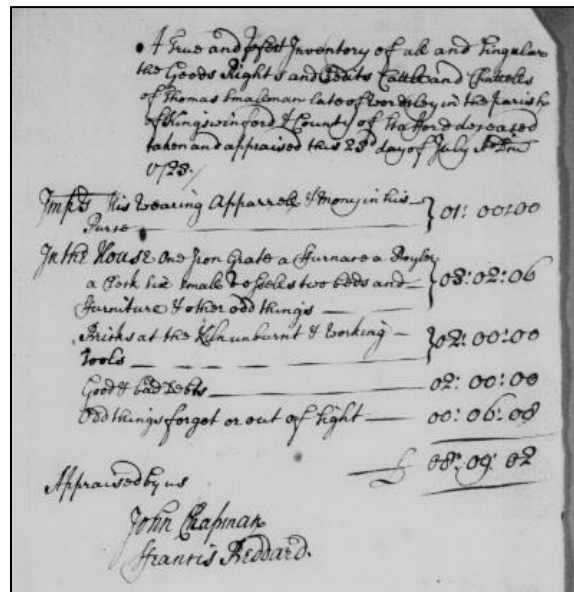 A True and pfect Inventory of all and Singular
the Goods Rights and Credits Cattle and Chattells
of Thomas Smaleman late of Wordsley in the parish
of Kingswinford & County of Stafford deceased
taken and appraised this 23d day of July Ao Dni
1723./
Imprs His Wearing Apparrell & Mony in his
Purse } 01: 00: 00
In the House One Iron Grate a ffurnace a Boyler
a Clock Six Small Vessells two beds and } 03: 02: 06
ffurniture & other odd things
Bricks at the Kiln unburnt & Working
tools } 02: 00: 00
Good & bad Debts 02: 00: 00
Odd things forgot or out of Sight 00: 06: 08
£ 08: 09: 02
Appraised by us
John Chapman
ffrancis Beddard.